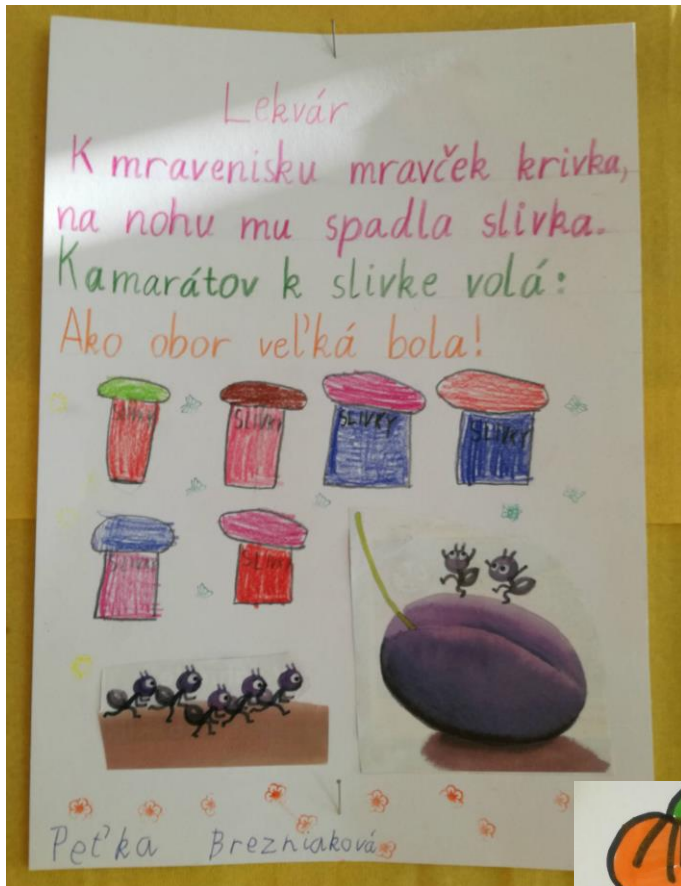 Lekvár
K mravenisku mravček krivka,
na nohu mu spadla slivka.
Kamarátov k slivke volá:
Ako obor veľká bola!
SLIVKY SLIVKY SLIVKY SLIVKY
SLIVKY SLIVKY
Peťka Brezniaková